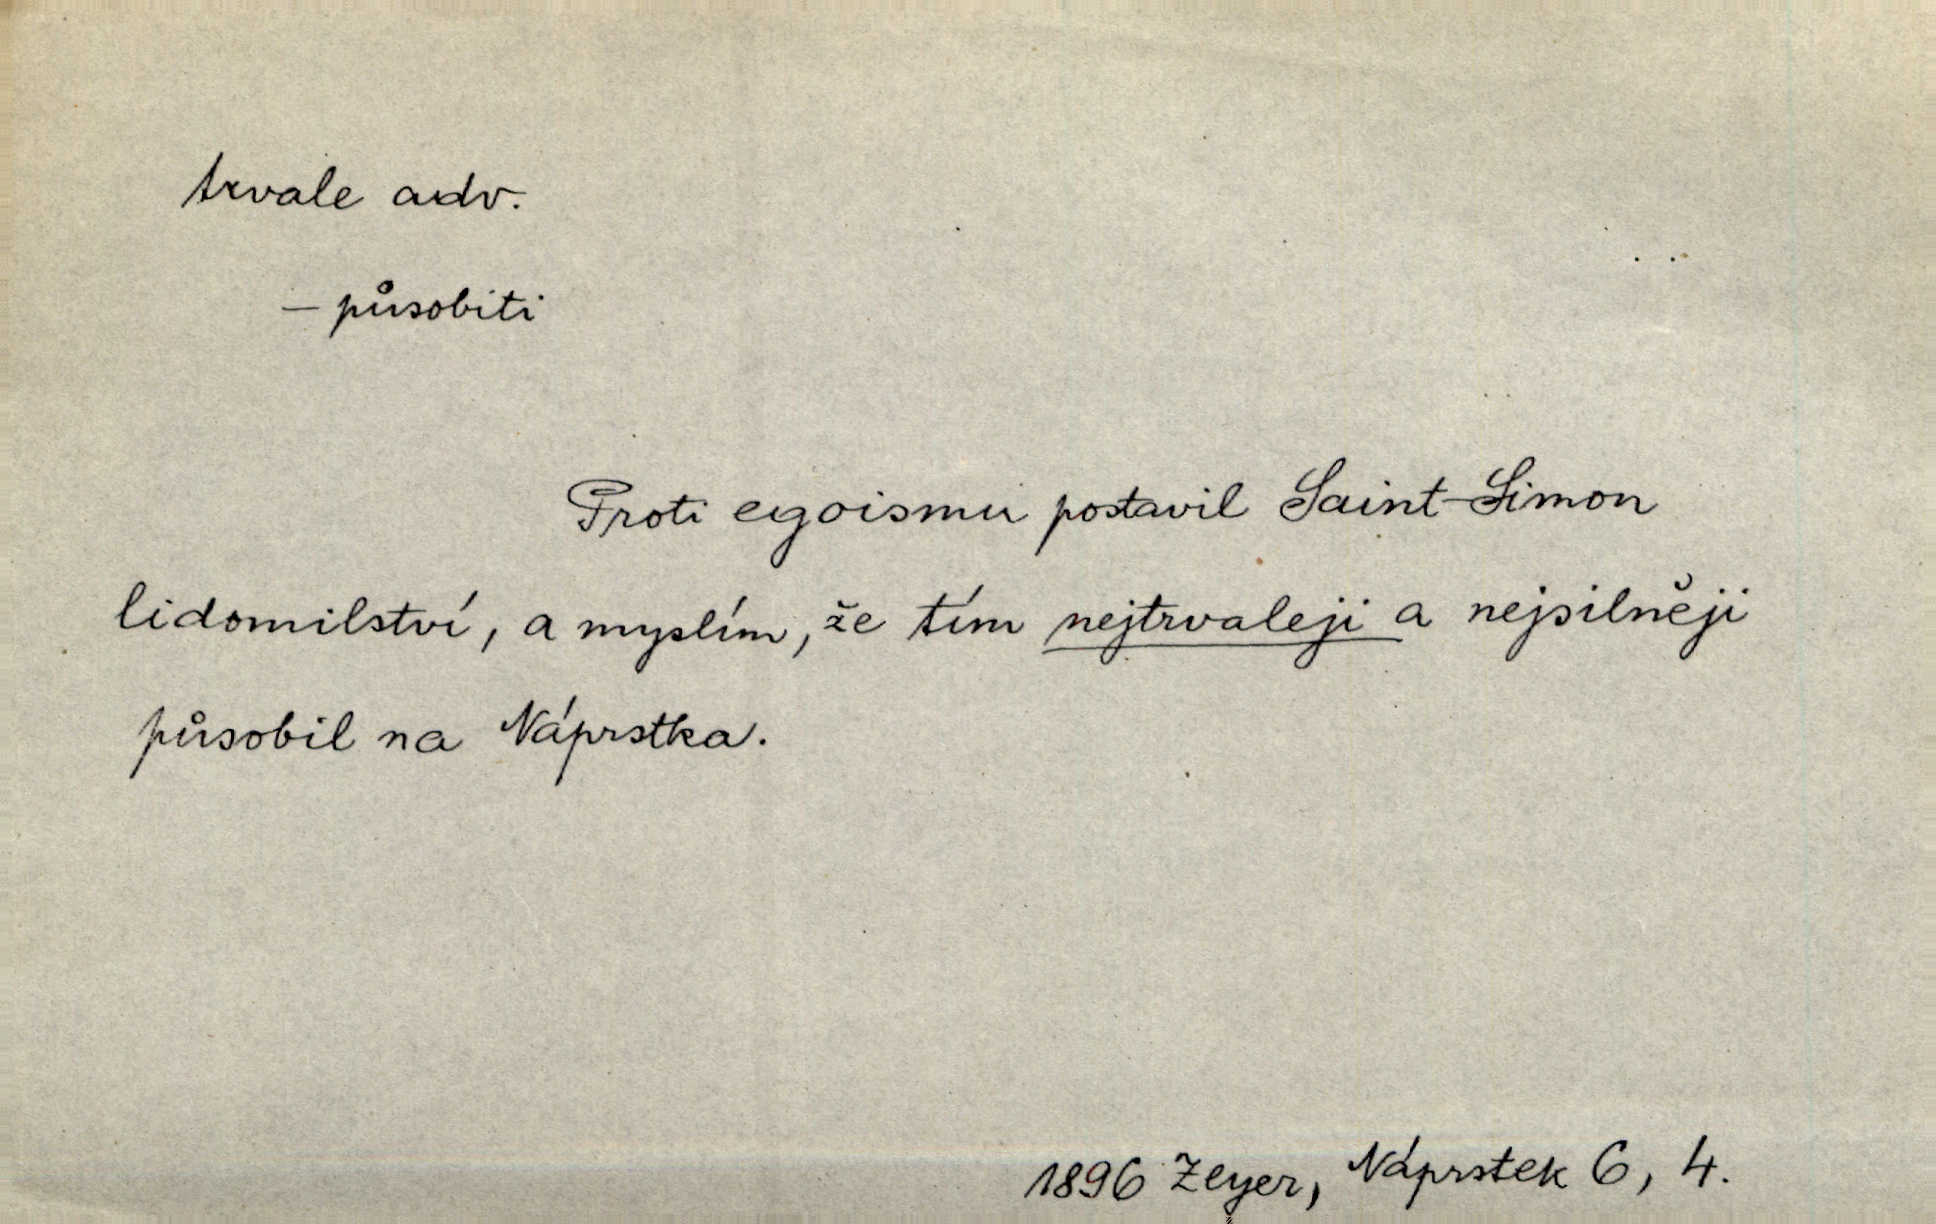 trvale adv.
– působiti
Proti egoismu postavil Saint-Simon
lidomilství, a myslím, že tím nejtrvaleji a nejsilněji
působil na Náprstka.
1896 Zeyer, Náprstek 6, 4.